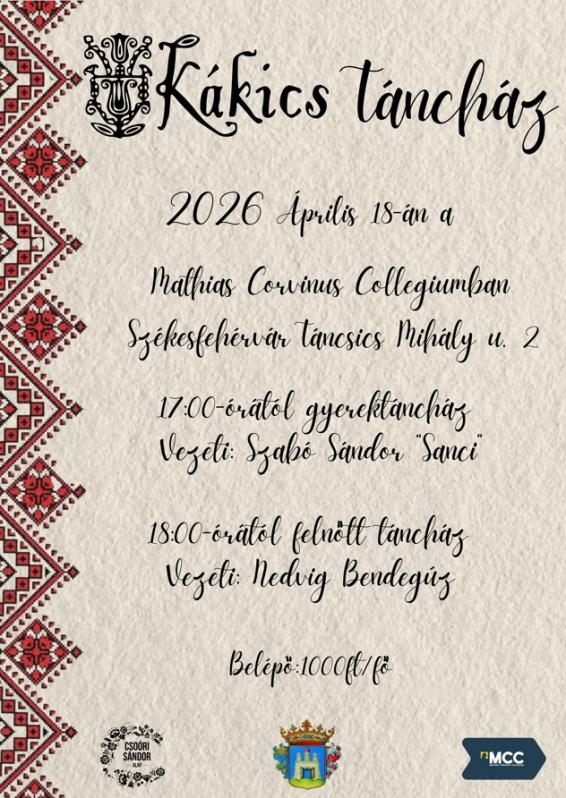 Kákics táncház
2026 Április 18-án a
Mathias Corvinus Collegiumban
Székesfehérvár Táncsics Mihály u. 2
17:00-órától gyerektáncház
Vezeti: Szabó Sándor "Sanci"
18:00-órától felnőtt táncház
Vezeti: Nedvig Bendegúz
Belépő:1000ft/fő
CSOÓRI
SÁNDOR
ALAP
MCC